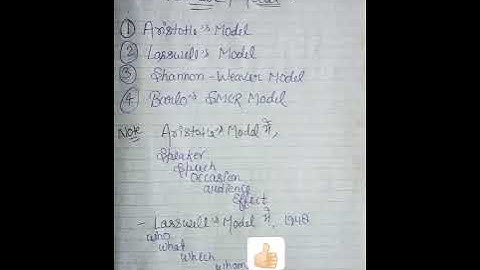 ① Aristotle's Model
② Lasswell's Model
③ Shannon-Weaver Model
④ Barlo's SMCR Model
Note Aristotle's Model में,
Speaker
Speech
Occasion
audience
Effect
- Lasswell's Model में, 1948
who
what
which
whom